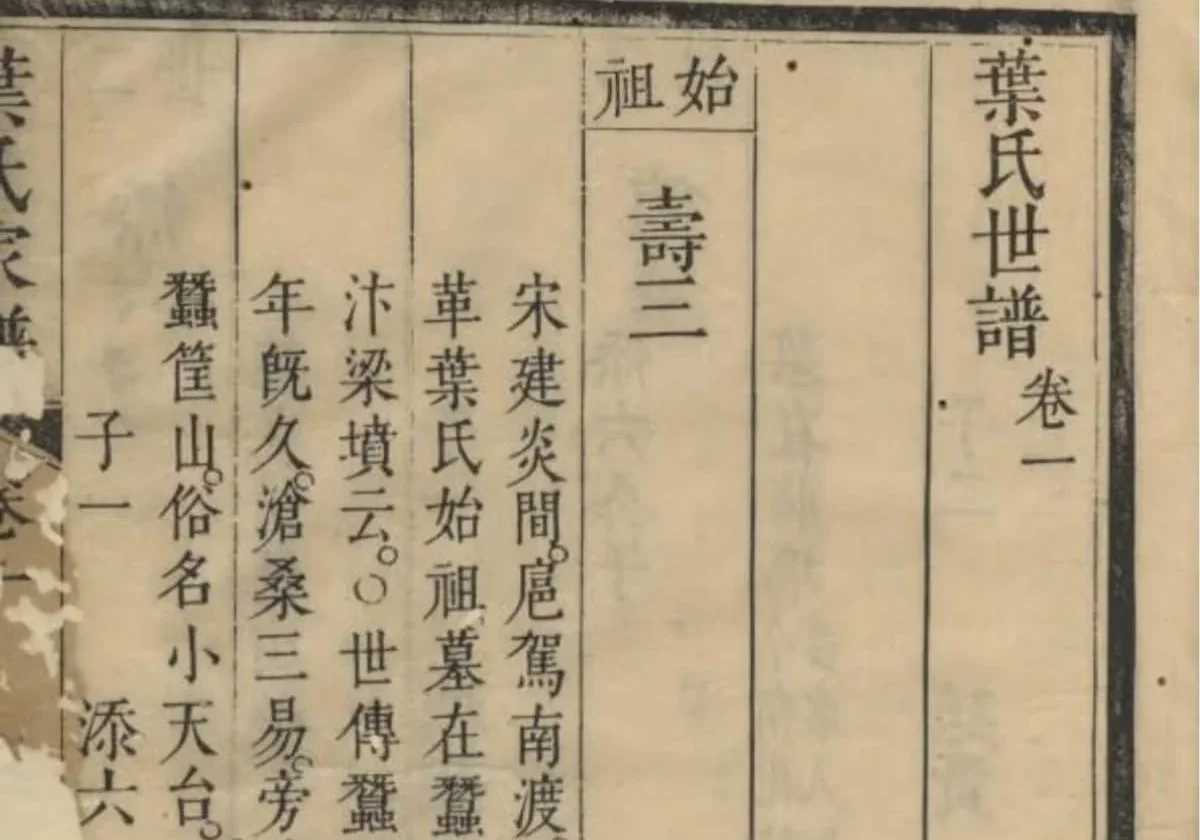 葉氏世譜 卷一
始祖
壽三
宋建炎間。扈駕南渡
革葉氏始祖墓在蠶
汴梁墳云。○世傳蠶
年既久。滄桑三易。旁
蠶筐山。俗名小天台。
子一 添六
葉氏家譜 卷一